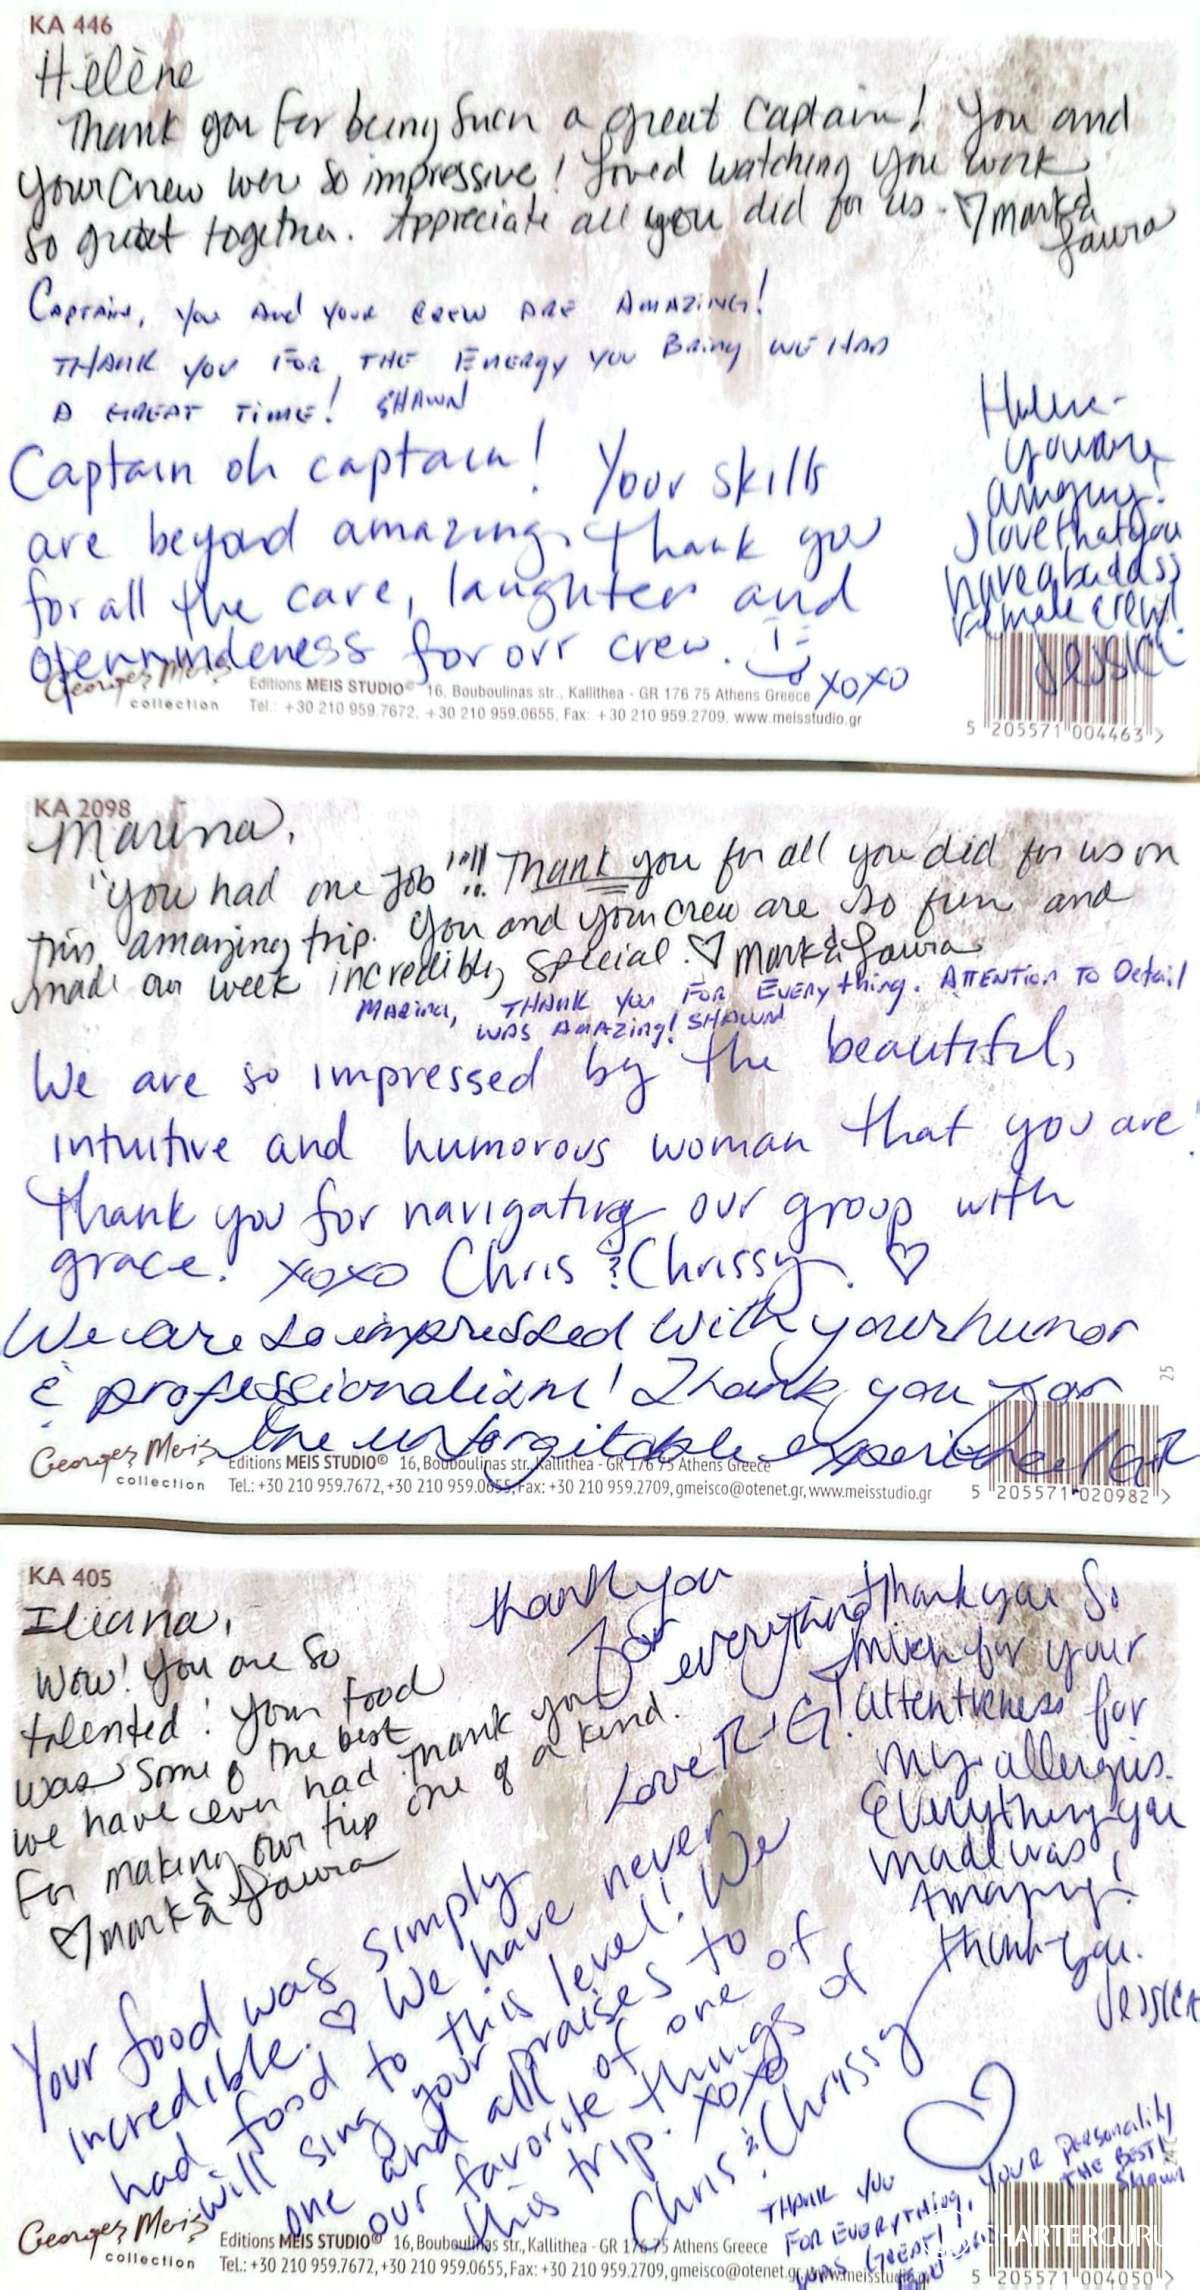 KA 446
Hélène
Thank you for being such a great captain! You and
your crew were so impressive! Loved watching you work
so great together. Appreciate all you did for us. ♡ Mark &
Laura
Captain, you and your crew are amazing!
Thank you for the energy you bring we had
a great time! Shawn
Captain oh captain! Your skills
are beyond amazing. Thank you
for all the care, laughter and
openmindeness for our crew.
xoxo
Helene-
you are
amazing!
I love that you
have a badass
female crew!
Jessica
Georges Meis
collection
Editions MEIS STUDIO© 16, Bouboulinas str., Kallithea - GR 176 75 Athens Greece
Tel.: +30 210 959.7672, +30 210 959.0655, Fax: +30 210 959.2709, www.meisstudio.gr
5 205571 004463 >
KA 2098
Marina,
"You had one job"!!! Thank you for all you did for us on
this amazing trip. You and your crew are so fun and
made our week incredibly special. ♡ Mark & Laura
Marina, Thank you for everything. Attention to detail
was amazing! Shawn
We are so impressed by the beautiful,
intuitive and humorous woman that you are!
Thank you for navigating our group with
grace. xoxo Chris & Chrissy. ♡
We are so impressed with your humor
& professionalism! Thank you for
the unforgitable experience!
25
Georges Meis
collection
Editions MEIS STUDIO© 16, Bouboulinas str. Kallithea - GR 176 75 Athens Greece
Tel.: +30 210 959.7672, +30 210 959.0655, Fax: +30 210 959.2709, gmeisco@otenet.gr, www.meisstudio.gr
5 205571 020982 >
KA 405
Iliana,
Wow! You are so
talented! Your food
was some of the best
we have ever had. Thank you
for making our trip one of a kind.
♡ Mark & Laura
Thank you
for everything
Love R & G!
Thank you so
much for your
attentiveness for
my allergies.
Everything you
made was
amazing!
Thank you.
Jessica
Your food was simply
incredible. ♡ We have never
had food to this level! We
will sing your praises to
one and all of one of
our favorite things of
this trip. xoxo
Chris & Chrissy
Thank you
for everything, your personality
was great the best!
Shawn
Georges Meis
collection
Editions MEIS STUDIO© 16, Bouboulinas str., Kallithea - GR 176 75 Athens Greece
Tel.: +30 210 959.7672, +30 210 959.0655, Fax: +30 210 959.2709, gmeisco@otenet.gr, www.meisstudio.gr
5 205571 004050 >
CHARTERGURU